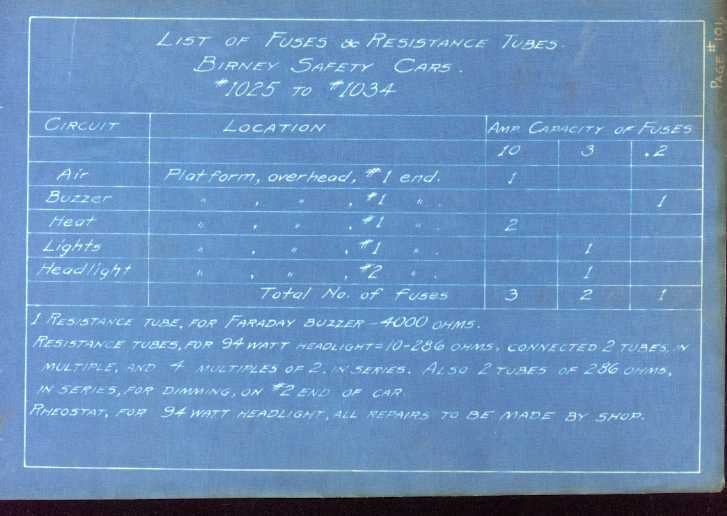 PAGE #101
LIST OF FUSES & RESISTANCE TUBES.
BIRNEY SAFETY CARS.
#1025 TO #1034
CIRCUIT LOCATION AMP. CAPACITY OF FUSES
10 3 .2
Air Platform, overhead, #1 end. 1
Buzzer " , " , #1 " . 1
Heat " , " , #1 " . 2
Lights " , " , #1 " . 1
Headlight " , " , #2 " . 1
Total No. of fuses 3 2 1
1 RESISTANCE TUBE, FOR FARADAY BUZZER - 4000 OHMS.
RESISTANCE TUBES, FOR 94 WATT HEADLIGHT = 10-286 OHMS, CONNECTED 2 TUBES, IN
MULTIPLE, AND 4 MULTIPLES OF 2, IN SERIES. ALSO 2 TUBES OF 286 OHMS,
IN SERIES, FOR DIMMING, ON #2 END OF CAR
RHEOSTAT, FOR 94 WATT HEADLIGHT, ALL REPAIRS TO BE MADE BY SHOP.